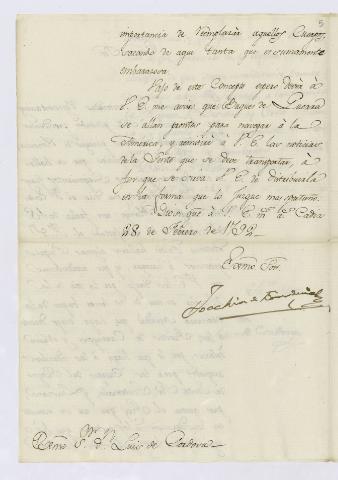 5
importancia de remplazar aquellos Cuerpos,
sacando de aqui tanta que es sumamente
embarazosa.
Bajo de este Concepto espero deverà à
V.E. me avise que Buques de Guerra
se allan prontos para navegar à la
America, y remitiré à V.E. las noticias
de la Gente que se deve transportar, à
fin que se sirva V.E. de distribuirla
en la forma que lo juzgue mas oportuno.
Dios gue à V.E. ms. as. Cadiz
28, de Febrero de 1782,,
Exmo Sor.
Joachin de
Exmo Sr. Dn. Luis de Cordova